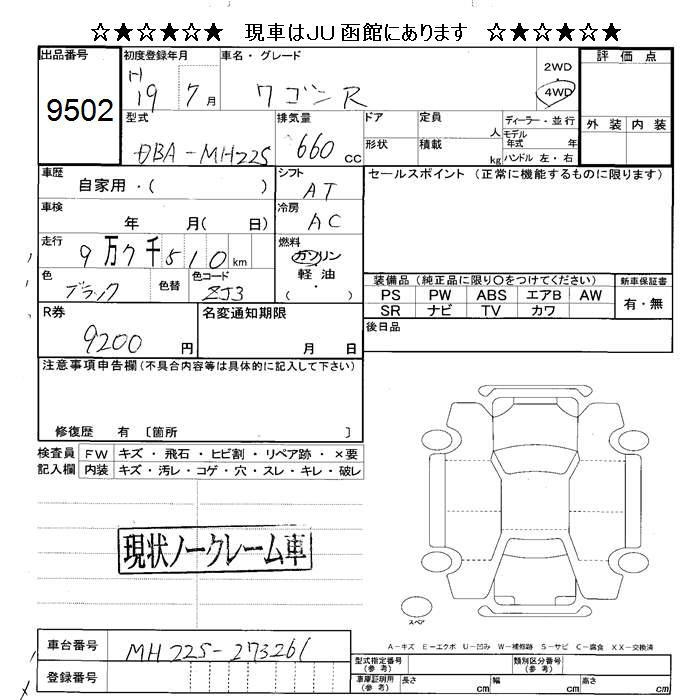 ☆★☆★☆★ 現車はJU函館にあります ☆★☆★☆★
出品番号 初度登録年月 車名・グレード 2WD・4WD 評価点
9502 H19 7月 ワゴンR
型式 排気量 ドア 定員 人 ディーラー・並行 外装 内装
モデル年式 年
DBA-MH22S 660cc 形状 積載 kg ハンドル 左・右
車歴 自家用・( ) シフト AT セールスポイント (正常に機能するものに限ります)
車検 年 月( 日) 冷房 AC
走行 9万7千510km 燃料 ガソリン 軽油・( )
色 ブラック 色替 色コード ZJ3
装備品 (純正品に限り○をつけてください) 新車保証書
PS PW ABS エアB AW 有・無
SR ナビ TV カワ
R券 9200円 名変通知期限 月 日 後日品
注意事項申告欄 (不具合内容等は具体的に記入して下さい)
修復歴 有 〔箇所 〕
検査員 FW キズ・飛石・ヒビ割・リペア跡・×要
記入欄 内装 キズ・汚レ・コゲ・穴・スレ・キレ・破レ
現状ノークレーム車
スペア
A-キズ E-エクボ U-凹み W-補修跡 S-サビ C-腐食 XX-交換済
車台番号 MH22S-273261
登録番号
型式指定番号(参考) 類別区分番号(参考)
車庫証明用(参考) 長さ cm 幅 cm 高さ cm